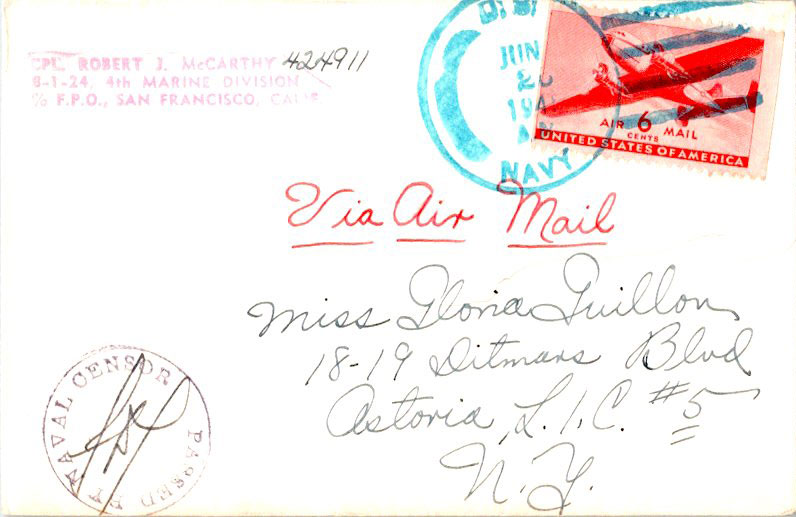 CPL. ROBERT J. McCARTHY 424911
B-1-24, 4th MARINE DIVISION
℅ F.P.O., SAN FRANCISCO, CALIF.
JUN
194
NAVY
AIR 6 MAIL
CENTS
UNITED STATES OF AMERICA
Via Air Mail
Miss Gloria Guillon
18-19 Ditmars Blvd
Astoria, L.I.C. #5
N.Y.
PASSED BY NAVAL CENSOR